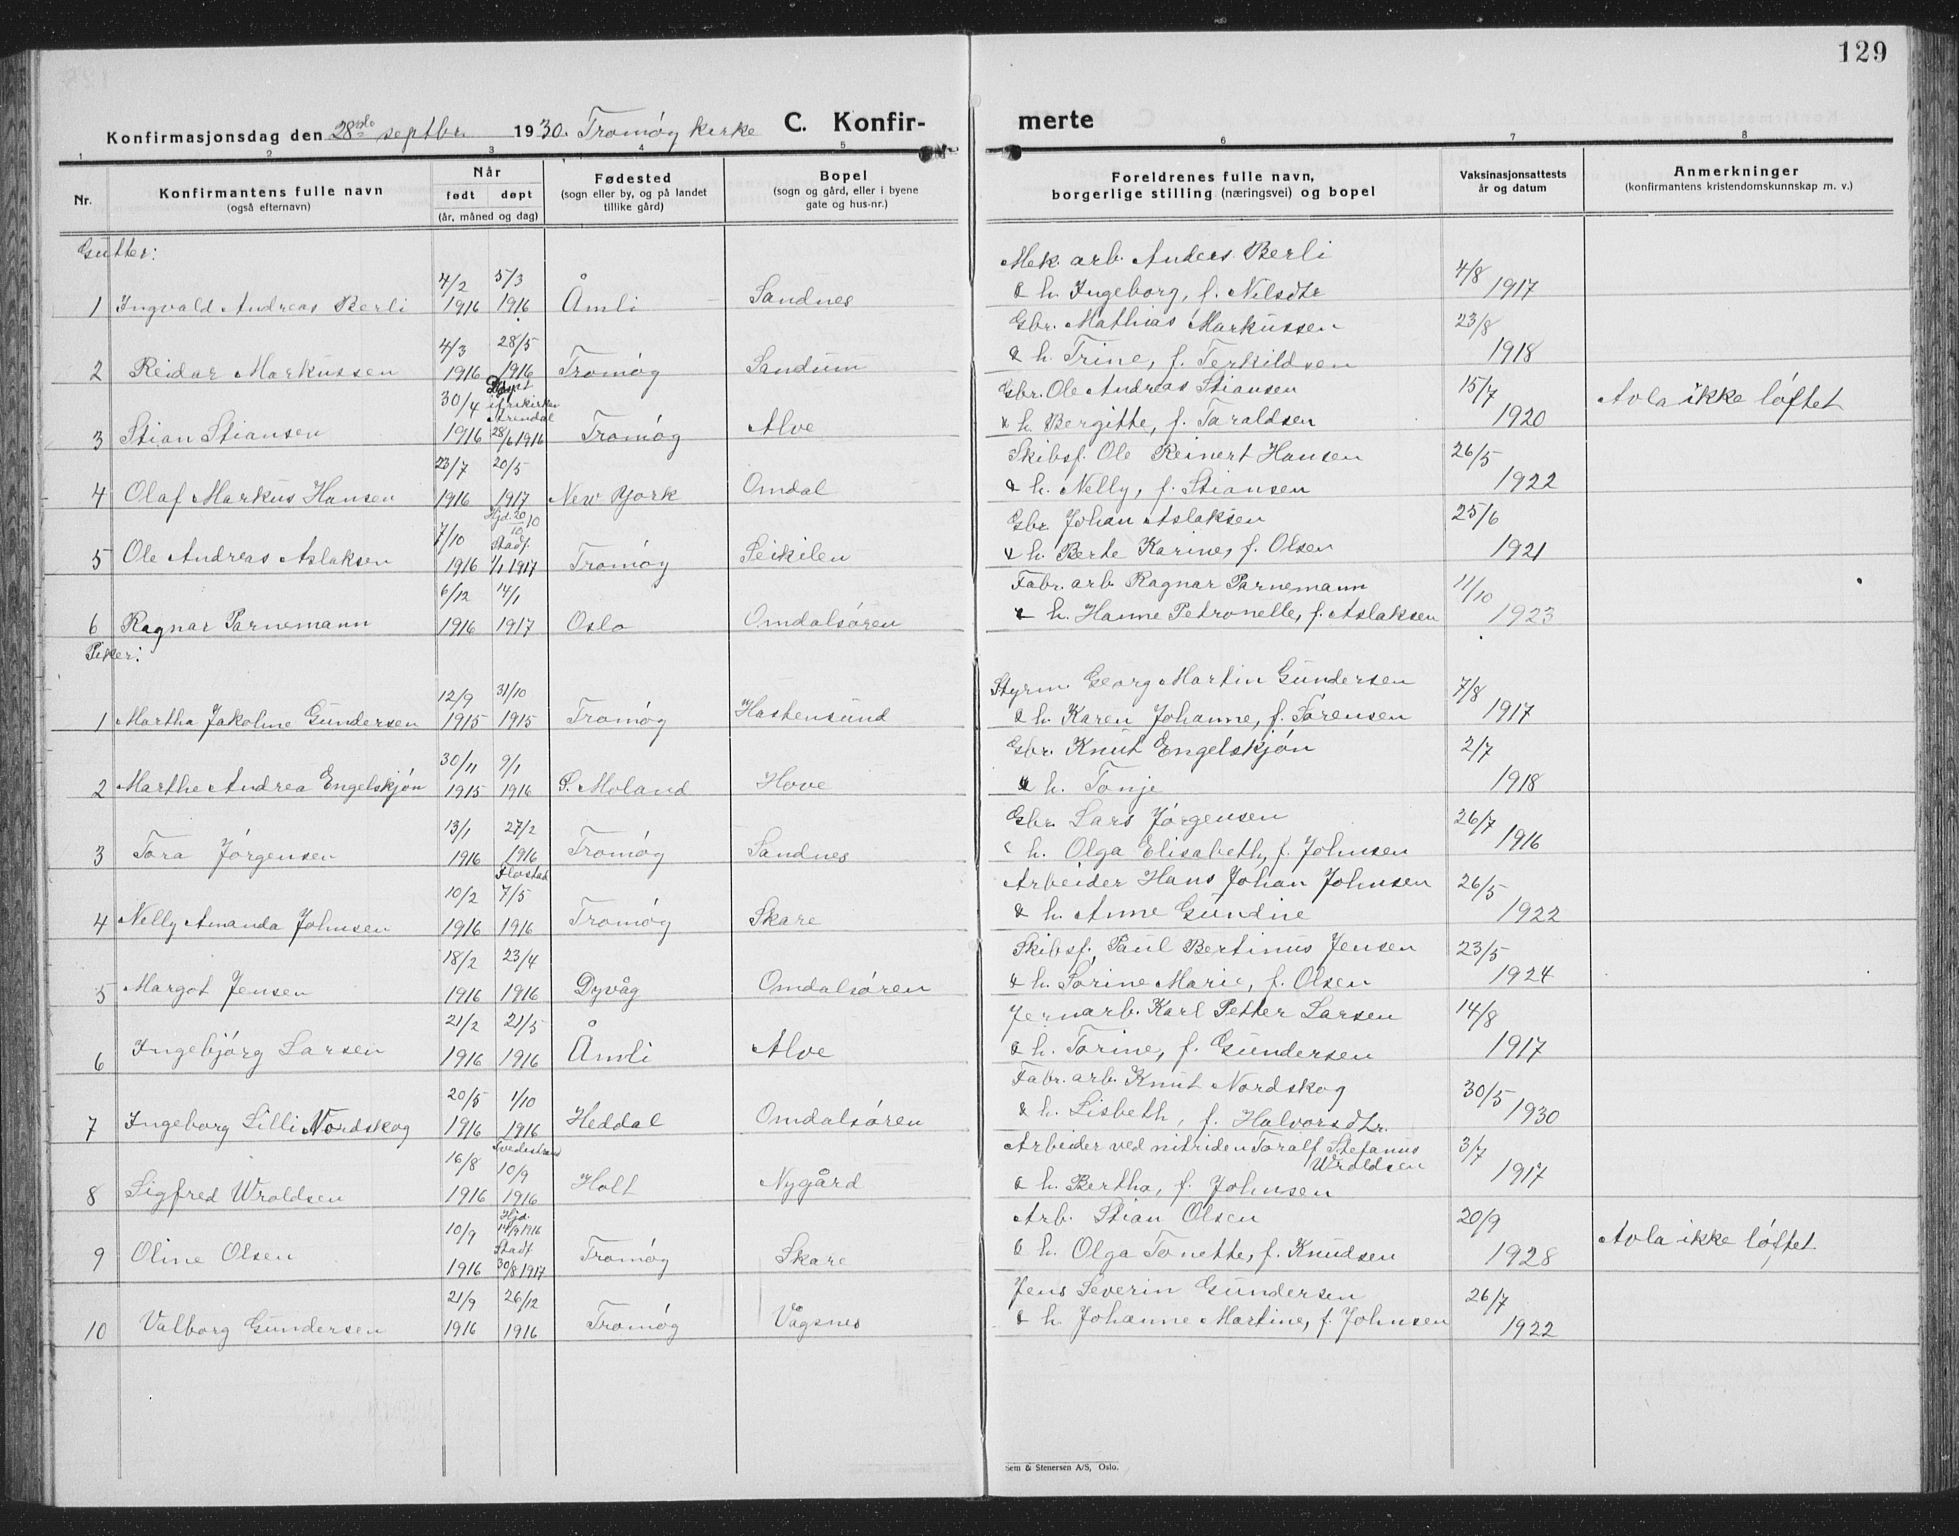 129
Konfirmasjonsdag den 28de septbr. 1930. Tromøy kirke C. Konfir- merte
1 2 3 4 5 6 7 8
Nr. Konfirmantens fulle navn (også efternavn) Når født døpt (år, måned og dag) Fødested (sogn eller by, og på landet tillike gård) Bopel (sogn og gård, eller i byene gate og hus-nr.) Foreldrenes fulle navn, borgerlige stilling (næringsvei) og bopel Vaksinasjonsattests år og datum Anmerkninger (konfirmantens kristendomskunnskap m. v.)
Gutter:
4/2 5/3 Mek. arb. Anders Berli 4/8
1 Ingvald Andreas Berli 1916 1916 Åmli Sandnes & h. Ingeborg, f. Nilsdtr 1917
4/3 28/5 Gbr. Mathias Markussen 23/8
2 Reidar Markussen 1916 1916 Tromøy Sandum & h. Trine, f. Terkildsen 1918
30/4 Døpt i frikirken Arendal Gbr. Ole Andreas Stiansen 15/7 Avla ikke løftet
3 Stian Stiansen 1916 28/6 1916 Tromøy Alve & h. Bergitte, f. Taraldsen 1920
23/7 20/5 Skibsf. Ole Reinert Hansen 26/5
4 Olaf Markus Hansen 1916 1917 New York Omdal & h. Nelly, f. Stiansen 1922
7/10 Hjd. 20/10 Stadf. Gbr. Johan Aslaksen 25/6
5 Ole Andreas Aslaksen 1916 1/1 1917 Tromøy Seikilen & h. Berte Karine, f. Olsen 1921
6/12 14/1 Fabr. arb. Ragnar Parnemann 11/10
6 Ragnar Parnemann 1916 1917 Oslo Omdalsøren & h. Hanne Petronelle, f. Aslaksen 1923
Piker:
12/9 31/10 Styrm. Georg Martin Gundersen 7/8
1 Martha Jakoline Gundersen 1915 1915 Tromøy Hastensund & h. Karen Johanne, f. Sørensen 1917
30/11 9/1 Gbr. Knut Engelskjøn 2/7
2 Marthe Andrea Engelskjøn 1915 1916 Ø. Moland Hove & h. Tonje 1918
13/1 27/2 Gbr. Lars Jørgensen 26/7
3 Tora Jørgensen 1916 1916 Tromøy Sandnes & h. Olga Elisabeth, f. Johnsen 1916
10/2 Flostad 7/5 Arbeider Hans Johan Johnsen 26/5
4 Nelly Amanda Johnsen 1916 1916 Tromøy Skare & h. Anne Gundine 1922
18/2 23/4 Skibsf. Paul Bertinus Jensen 23/5
5 Margot Jensen 1916 1916 Dyvåg Omdalsøren & h. Sørine Marie, f. Olsen 1924
21/2 21/5 Jernarb. Karl Petter Larsen 14/8
6 Ingebjørg Larsen 1916 1916 Åmli Alve & h. Torine, f. Gundersen 1917
20/5 1/10 Fabr. arb. Knut Nordskog 30/5
7 Ingeborg Lilli Nordskog 1916 1916 Heddal Omdalsøren & h. Lisbeth, f. Halvorsdtr. 1930
16/8 Tvedestrand 10/9 Arbeider ved nitriden Toralf Stefanus Wroldsen 3/7
8 Sigfred Wroldsen 1916 1916 Holt Nygård & h. Bertha, f. Johnsen 1917
10/9 Hjd. 14/9 1916 Stadf Arb. Stian Olsen 20/9 Avla ikke løftet
9 Oline Olsen 1916 30/8 1917 Tromøy Skare & h. Olga Tonette, f. Knudsen 1928
21/9 26/12 Jens Severin Gundersen 26/7
10 Valborg Gundersen 1916 1916 Tromøy Vågsnes & h. Johanne Martine, f. Johnsen 1922
Sem & Stenersen A/S, Oslo.